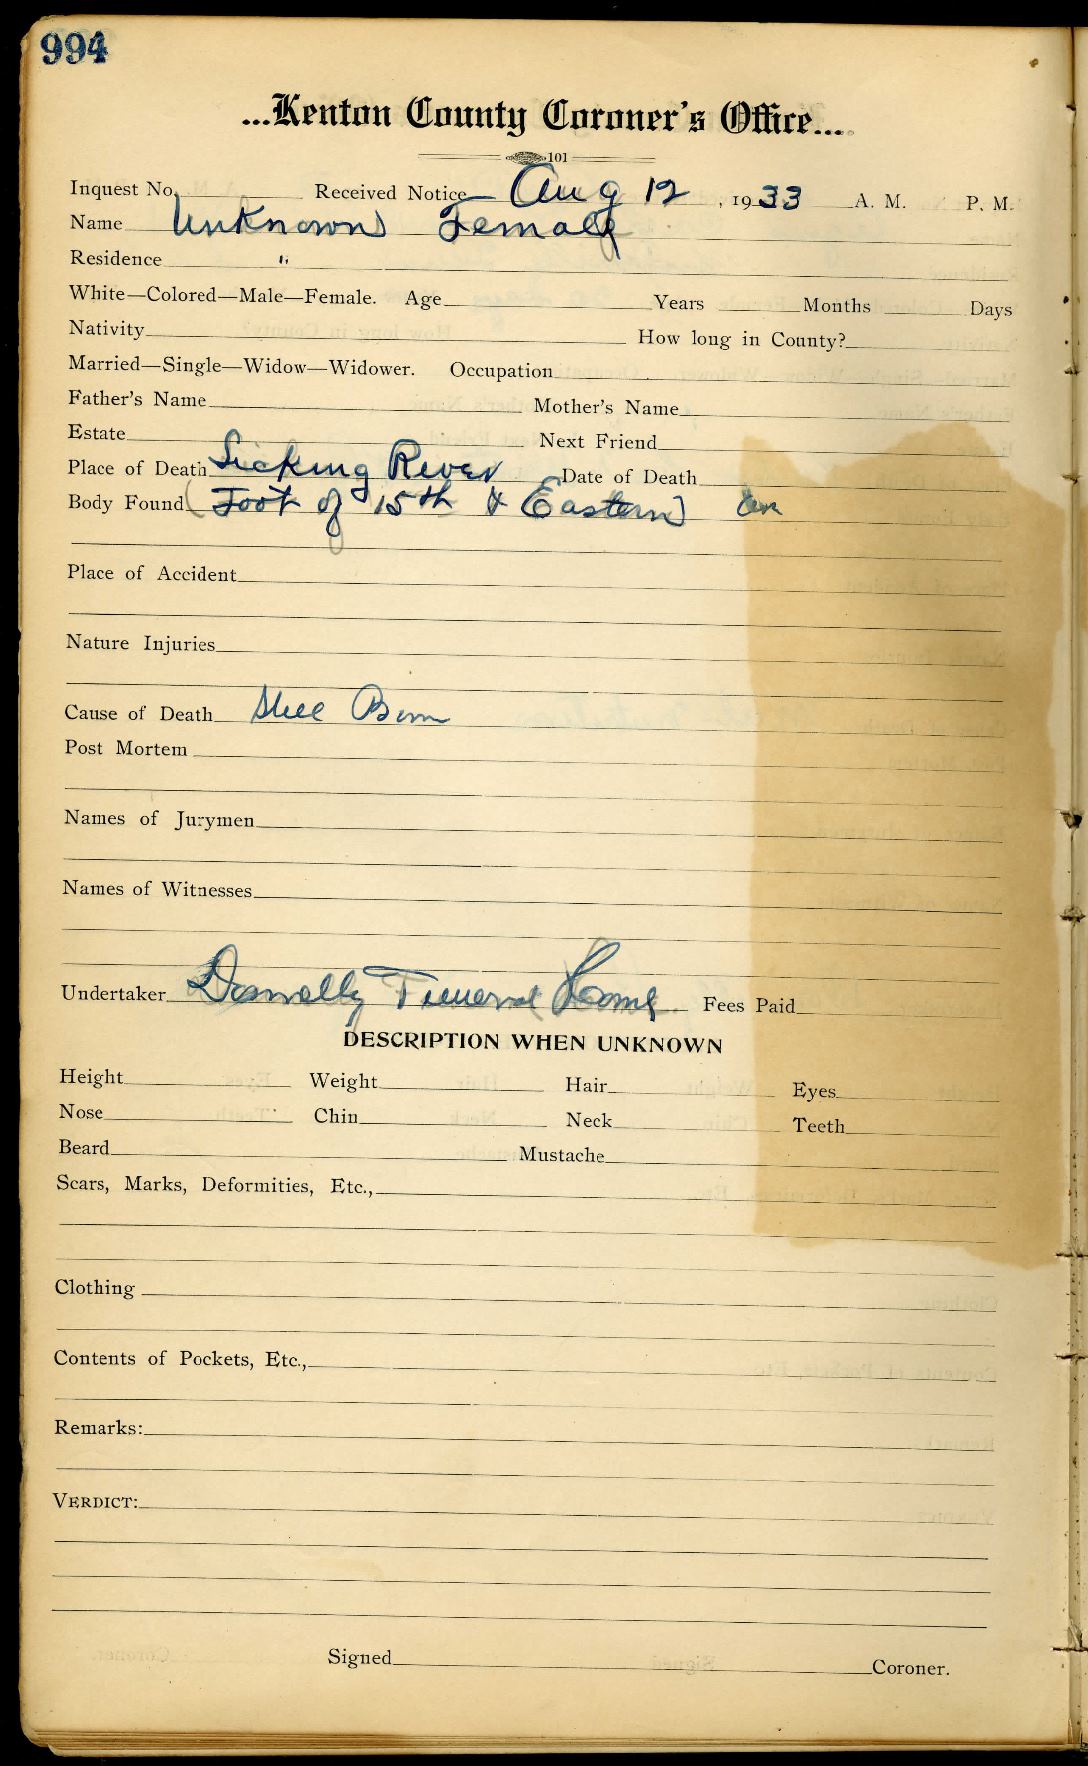 994
...Kenton County Coroner's Office...
101
Inquest No. Received Notice Aug 12, 1933 A. M. P. M.
Name Unknown Female
Residence "
White—Colored—Male—Female. Age Years Months Days
Nativity How long in County?
Married—Single—Widow—Widower. Occupation
Father's Name Mother's Name
Estate Next Friend
Place of Death Licking River Date of Death
Body Found (Foot of 15th & Eastern) Ave
Place of Accident
Nature Injuries
Cause of Death Still Born
Post Mortem
Names of Jurymen
Names of Witnesses
Undertaker Donnelly Funeral Home Fees Paid
DESCRIPTION WHEN UNKNOWN
Height Weight Hair Eyes
Nose Chin Neck Teeth
Beard Mustache
Scars, Marks, Deformities, Etc.,
Clothing
Contents of Pockets, Etc.,
Remarks:
VERDICT:
Signed Coroner.